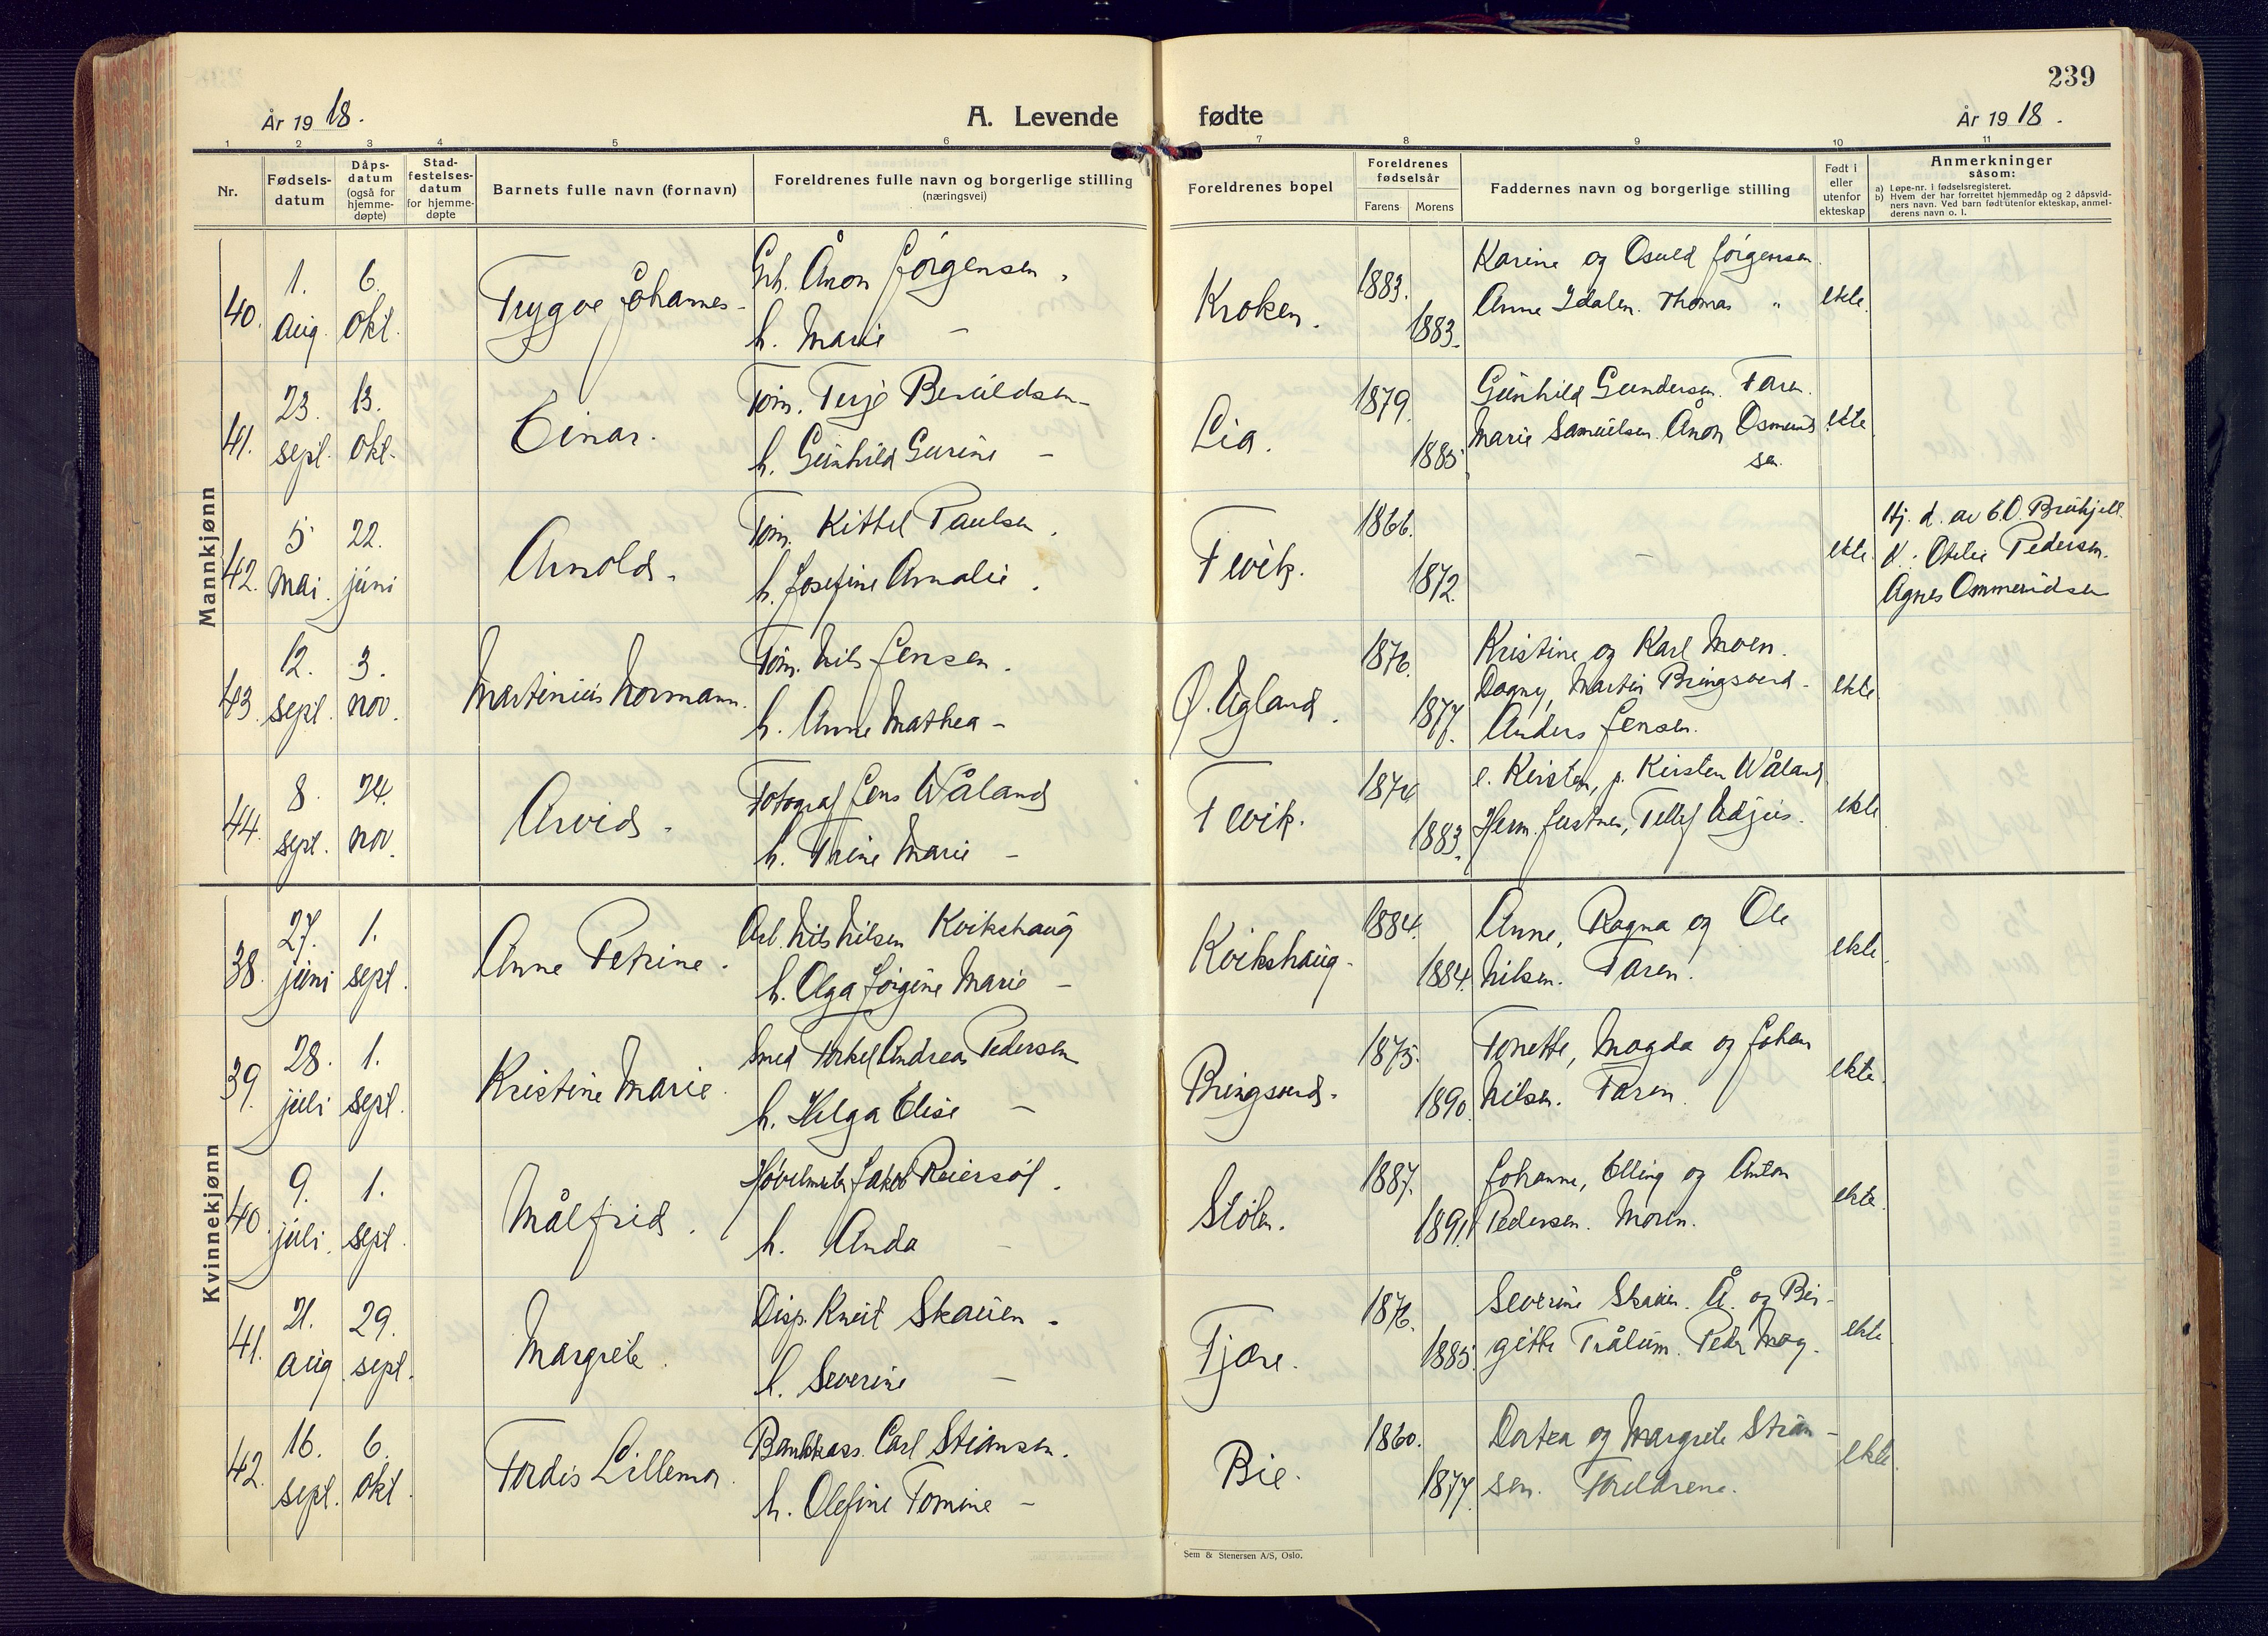 239
År 1918.
A. Levende fødte
År 1918.
1 2 3 4 5 6 7 8 9 10 11
Nr.
Fødsels-
datum
Dåps-
datum
(også for
hjemme-
døpte)
Stad-
festelses-
datum
for hjemme-
døpte
Barnets fulle navn (fornavn)
Foreldrenes fulle navn og borgerlige stilling
(næringsvei)
Foreldrenes bopel
Foreldrenes
fødselsår
Farens Morens
Faddernes navn og borgerlige stilling
Født i
eller
utenfor
ekteskap
Anmerkninger
såsom:
a) Løpe-nr. i fødselsregisteret.
b) Hvem der har forrettet hjemmedåp og 2 dåpsvid-
ners navn. Ved barn født utenfor ekteskap, anmel-
derens navn o. l.
Mannkjønn
40. 1. aug. 6. okt. Trygve Johannes
Grb. Ånon Jörgensen.
h. Marie –
Kroken. 1883. 1883.
Karine og Osuld Jörgensen.
Anne Idalen. Thomas "
ekte.
41. 23. sept. 13. okt. Einar.
Töm. Terje Beruldsen
h. Gunhild Gurine –
Lia. 1879. 1885
Gunhild Gundersen. Faren.
Marie Samuelsen. Ånon Osmund
sen.
ekte
42. 5 mai. 22. juni Arnold.
Töm. Kittel Paulsen.
h. Josefine Amalie.
Fevik. 1866. 1872.
–
ekte.
Hj. d. av
V: Otilie Pedersen.
Agnes Ommundsen
43. 12. sept. 3. nov. Martinius Normann.
Töm. Nils Jensen.
h. Anne Mathea –
Ø. Egland. 1876. 1877.
Kristine og Karl Moen.
Dagny, Martin Bringsverd.
Anders Jensen.
ekte
44. 8. sept. 24. nov. Arvid.
Fotograf Jens Wåland
h. Trine Marie –
Fevik. 1874 1883.
e. Kirsten, p. Kirsten Wåland
Herm. Justnes, Tellef Udjus.
ekte
Kvinnekjønn
38. 27. juni 1. sept. Anne Petrine.
Arb. Nils Nilsen Kvikshaug
h. Olga Jörgine Marie –
Kvikshaug. 1884. 1884.
Anne, Ragna og Ole
Nilsen. Faren.
ekte.
39. 28. juli 1. sept. Kristine Marie.
Smed Torkel Andreas Pedersen
h. Helga Elise –
Bringsverd. 1875. 1890.
Tonette, Magda og Johan
Nilsen. Faren.
ekte.
40. 9. juli. 1. sept. Målfrid.
Høvelmester Jakob Reiersöl.
h. Anda –
Stölen. 1887. 1891.
Johanne, Elling og Anton
Pedersen. Moren.
ekte.
41. 21. aug. 29. sept. Margrete.
Disp. Knut Skauen.
h. Severine –
Fjære. 1876. 1885.
Severine Skauen. Å. og Bir-
gitte Trålum. Peder Mag.
ekte
42. 16. sept. 6. okt. Tordis Lillemor.
Bankkass. Carl Stiansen.
h. Olefine Tomine –
Bie. 1860. 1877.
Dortea og Margrete Stian-
sen. Foreldrene.
ekte.
Sem & Stenersen A/S, Oslo.